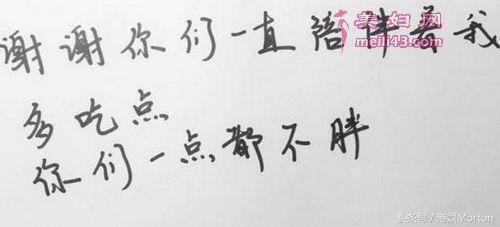 谢谢你们一直陪伴着我
美妇网
meili43.com
多吃点
你们一点都不胖
头条号/港娱Morton